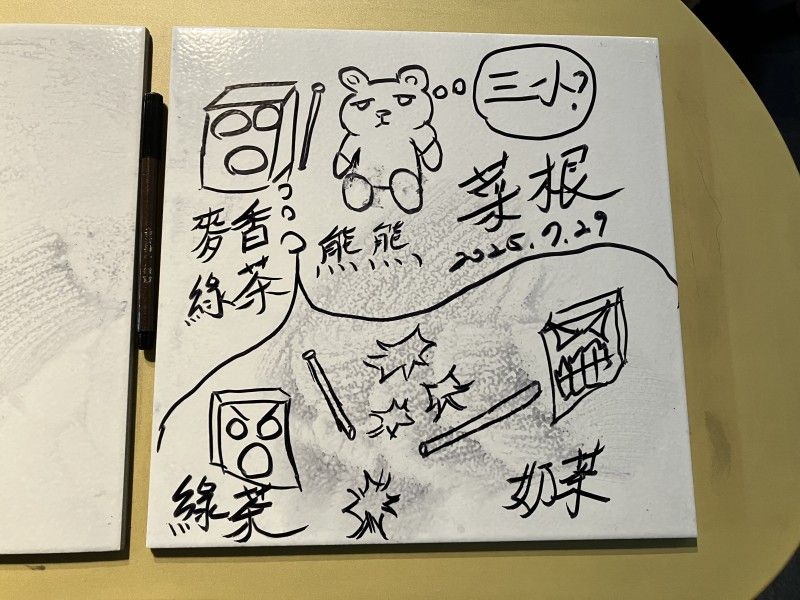 三小?
菜根
2025.7.29
麥香
綠茶
熊熊
綠茶
奶茶